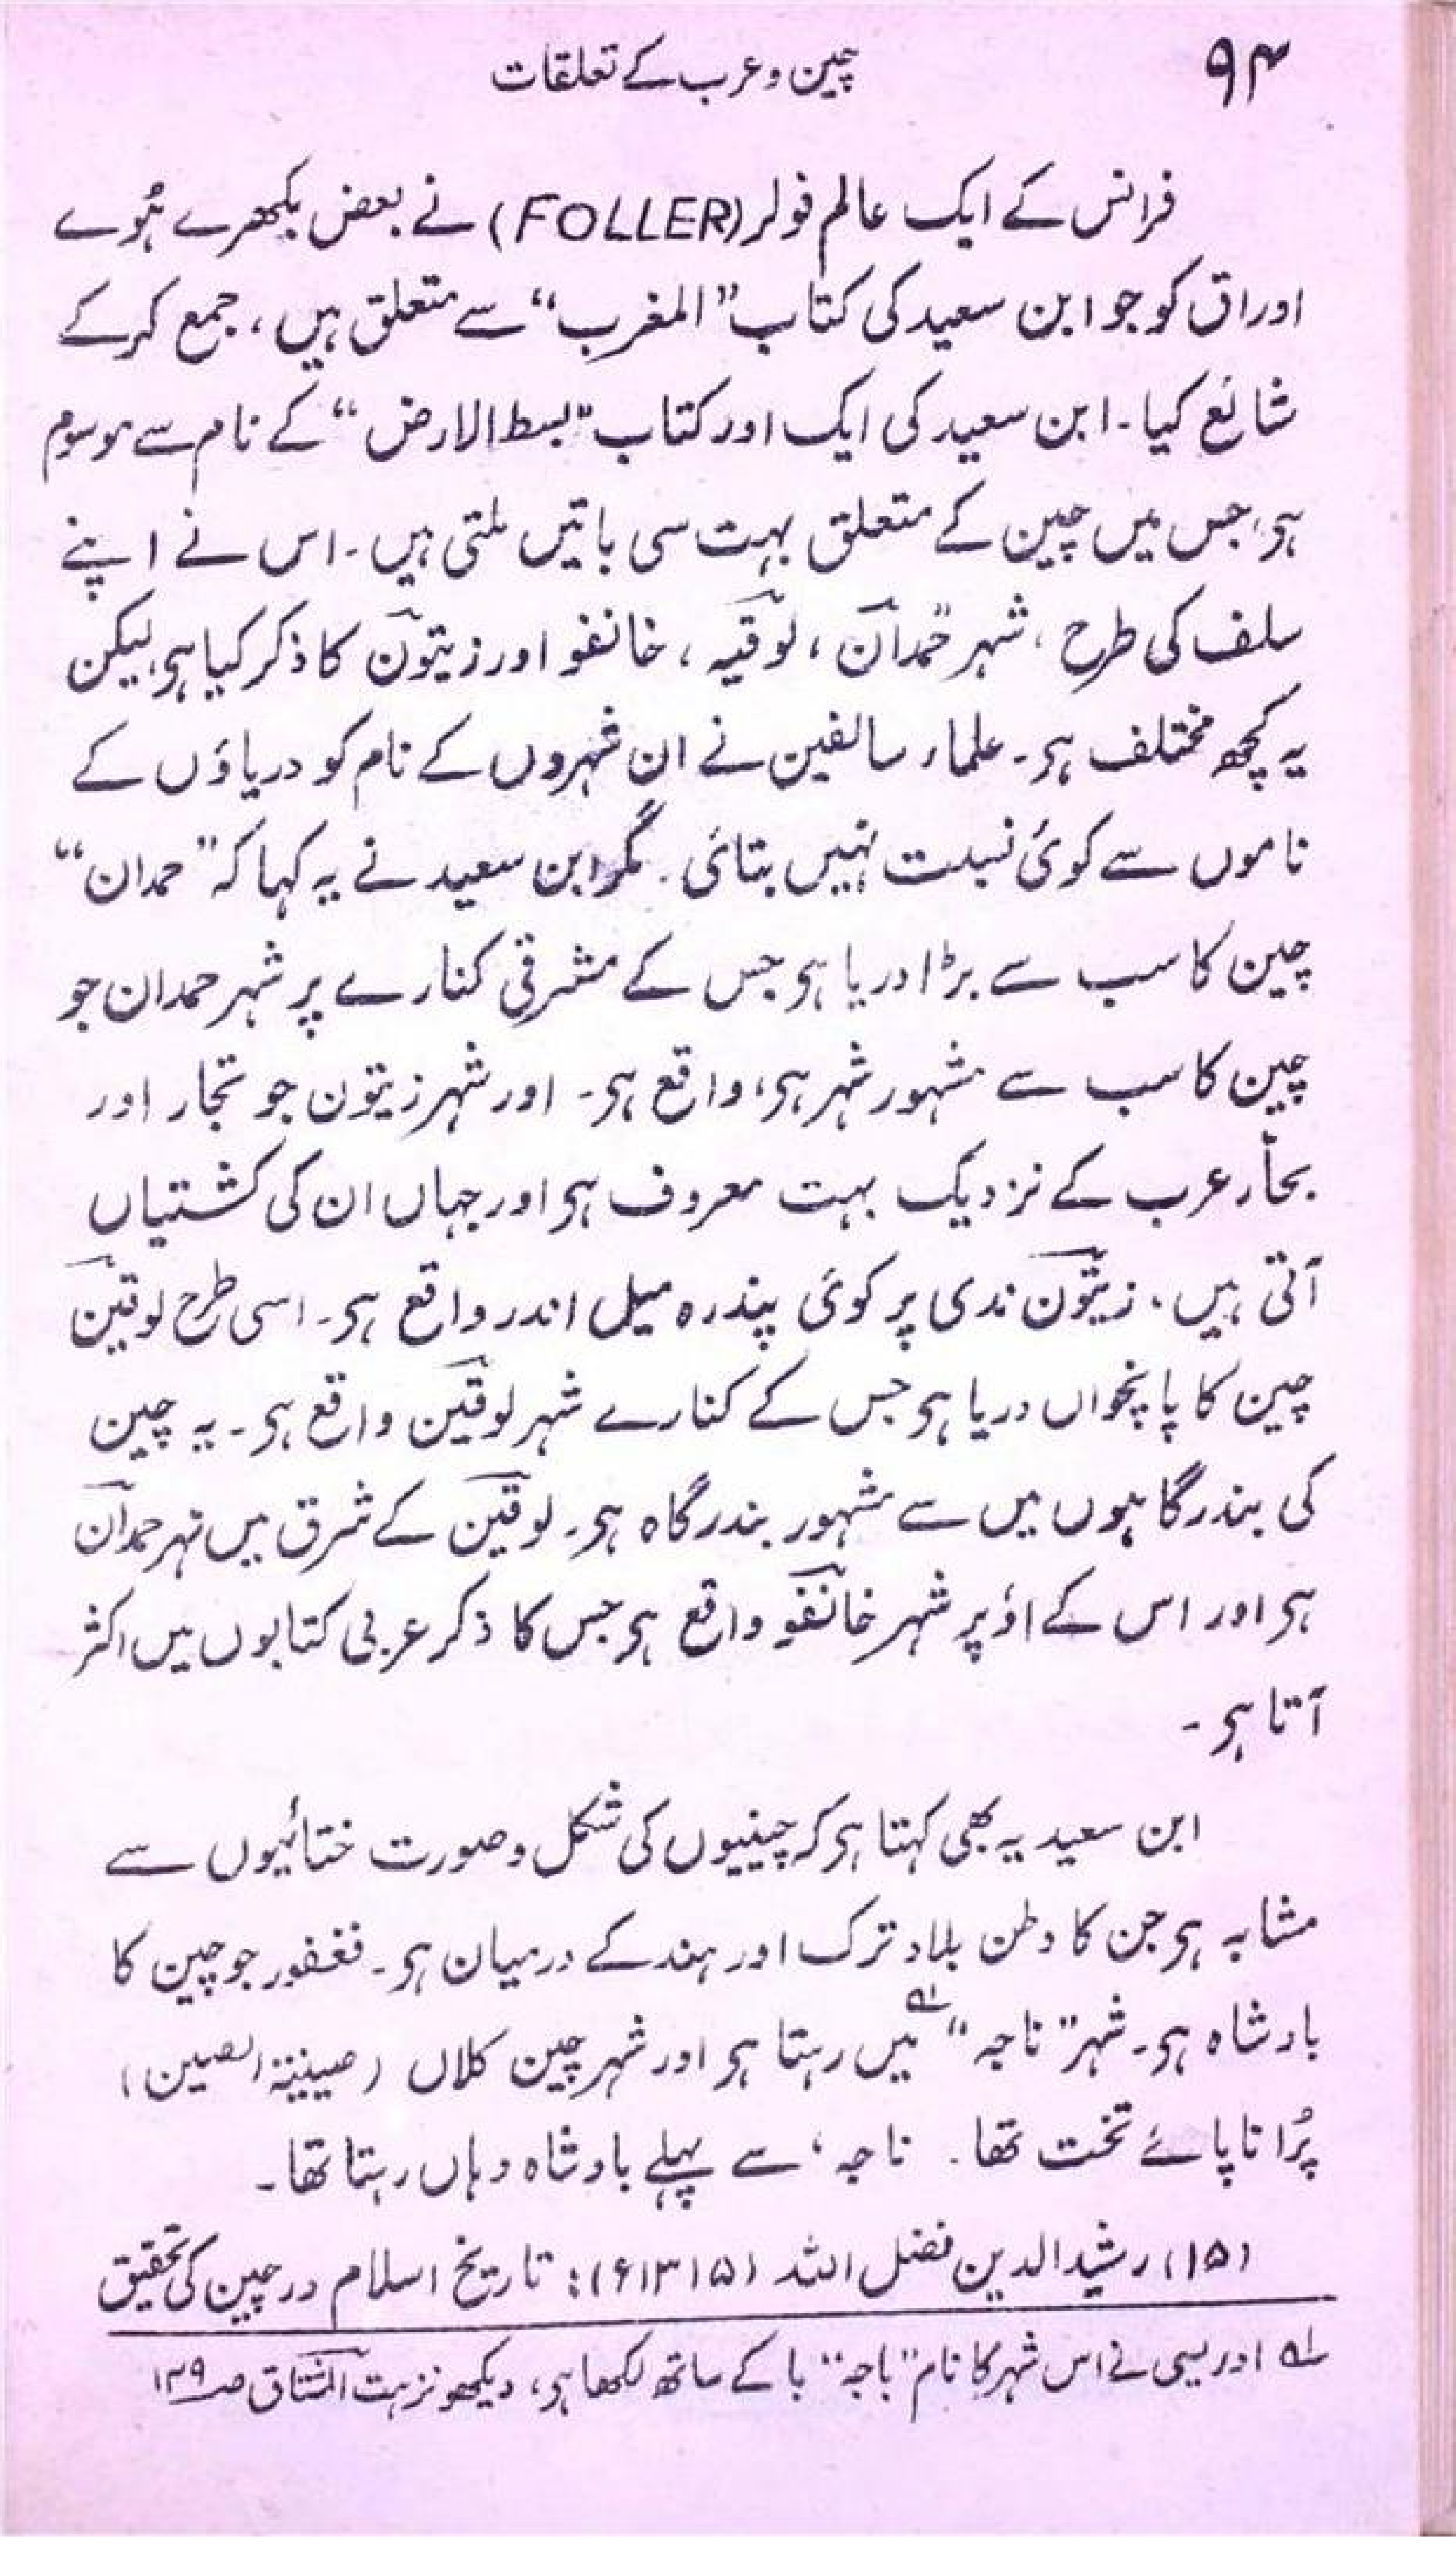 ۹۴
چین و عرب کے تعلقات
فرانس کے ایک عالم فولر (FOLLER) نے بعض بکھرے ہُوے
اوراق کو جو ابن سعید کی کتاب ”المغرب“ سے متعلق ہیں، جمع کرکے
شائع کیا۔ ابن سعید کی ایک اور کتاب ”بسط الارض“ کے نام سے موسوم
ہی، جس میں چین کے متعلق بہت سی باتیں ملتی ہیں۔ اس نے اپنے
سلف کی طرح، شہر خمدان، لوقیہ، خانفو اور زیتون کا ذکر کیا ہی، لیکن
یہ کچھ مختلف ہی۔ علماء سالفین نے ان شہروں کے نام کو دریاؤں کے
ناموں سے کوئی نسبت نہیں بتائی۔ مگر ابن سعید نے یہ کہا کہ ”حمدان“
چین کا سب سے بڑا دریا ہی جس کے مشرقی کنارے پر شہر حمدان جو
چین کا سب سے مشہور شہر ہی، واقع ہی۔ اور شہر زیتون جو تجار اور
بحّار عرب کے نزدیک بہت معروف ہی اور جہاں ان کی کشتیاں
آتی ہیں۔ زیتون ندی پر کوئی پندرہ میل اندر واقع ہی۔ اسی طرح لوقین
چین کا پانچواں دریا ہی جس کے کنارے شہر لوقین واقع ہی۔ یہ چین
کی بندرگاہوں میں سے مشہور بندرگاہ ہی۔ لوقین کے شرق میں نہر حمدان
ہی اور اس کے اوٗپر شہر خانفو واقع ہی جس کا ذکر عربی کتابوں میں اکثر
آتا ہی۔
ابن سعید یہ بھی کہتا ہی کہ چینیوں کی شکل و صورت ختائیوں سے
مشابہ ہی جن کا وطن بلاد ترک اور ہند کے درمیان ہی۔ فغفور جو چین کا
بادشاہ ہی۔ شہر ”ناجہ“ ؎۱ میں رہتا ہی اور شہر چین کلاں (صینیۃ الصین)
پُرانا پائے تخت تھا۔ ناجہ، سے پہلے بادشاہ وہاں رہتا تھا۔
(۱۵) رشید الدین فضل اللہ (۱۳۱۵ء): تاریخ اسلام در چین کی تحقیق
؎۱ ادریسی نے اس شہر کا نام ”باجہ“ با کے ساتھ لکھا ہی، دیکھو نزہت المشتاق صـ ۱۳۹